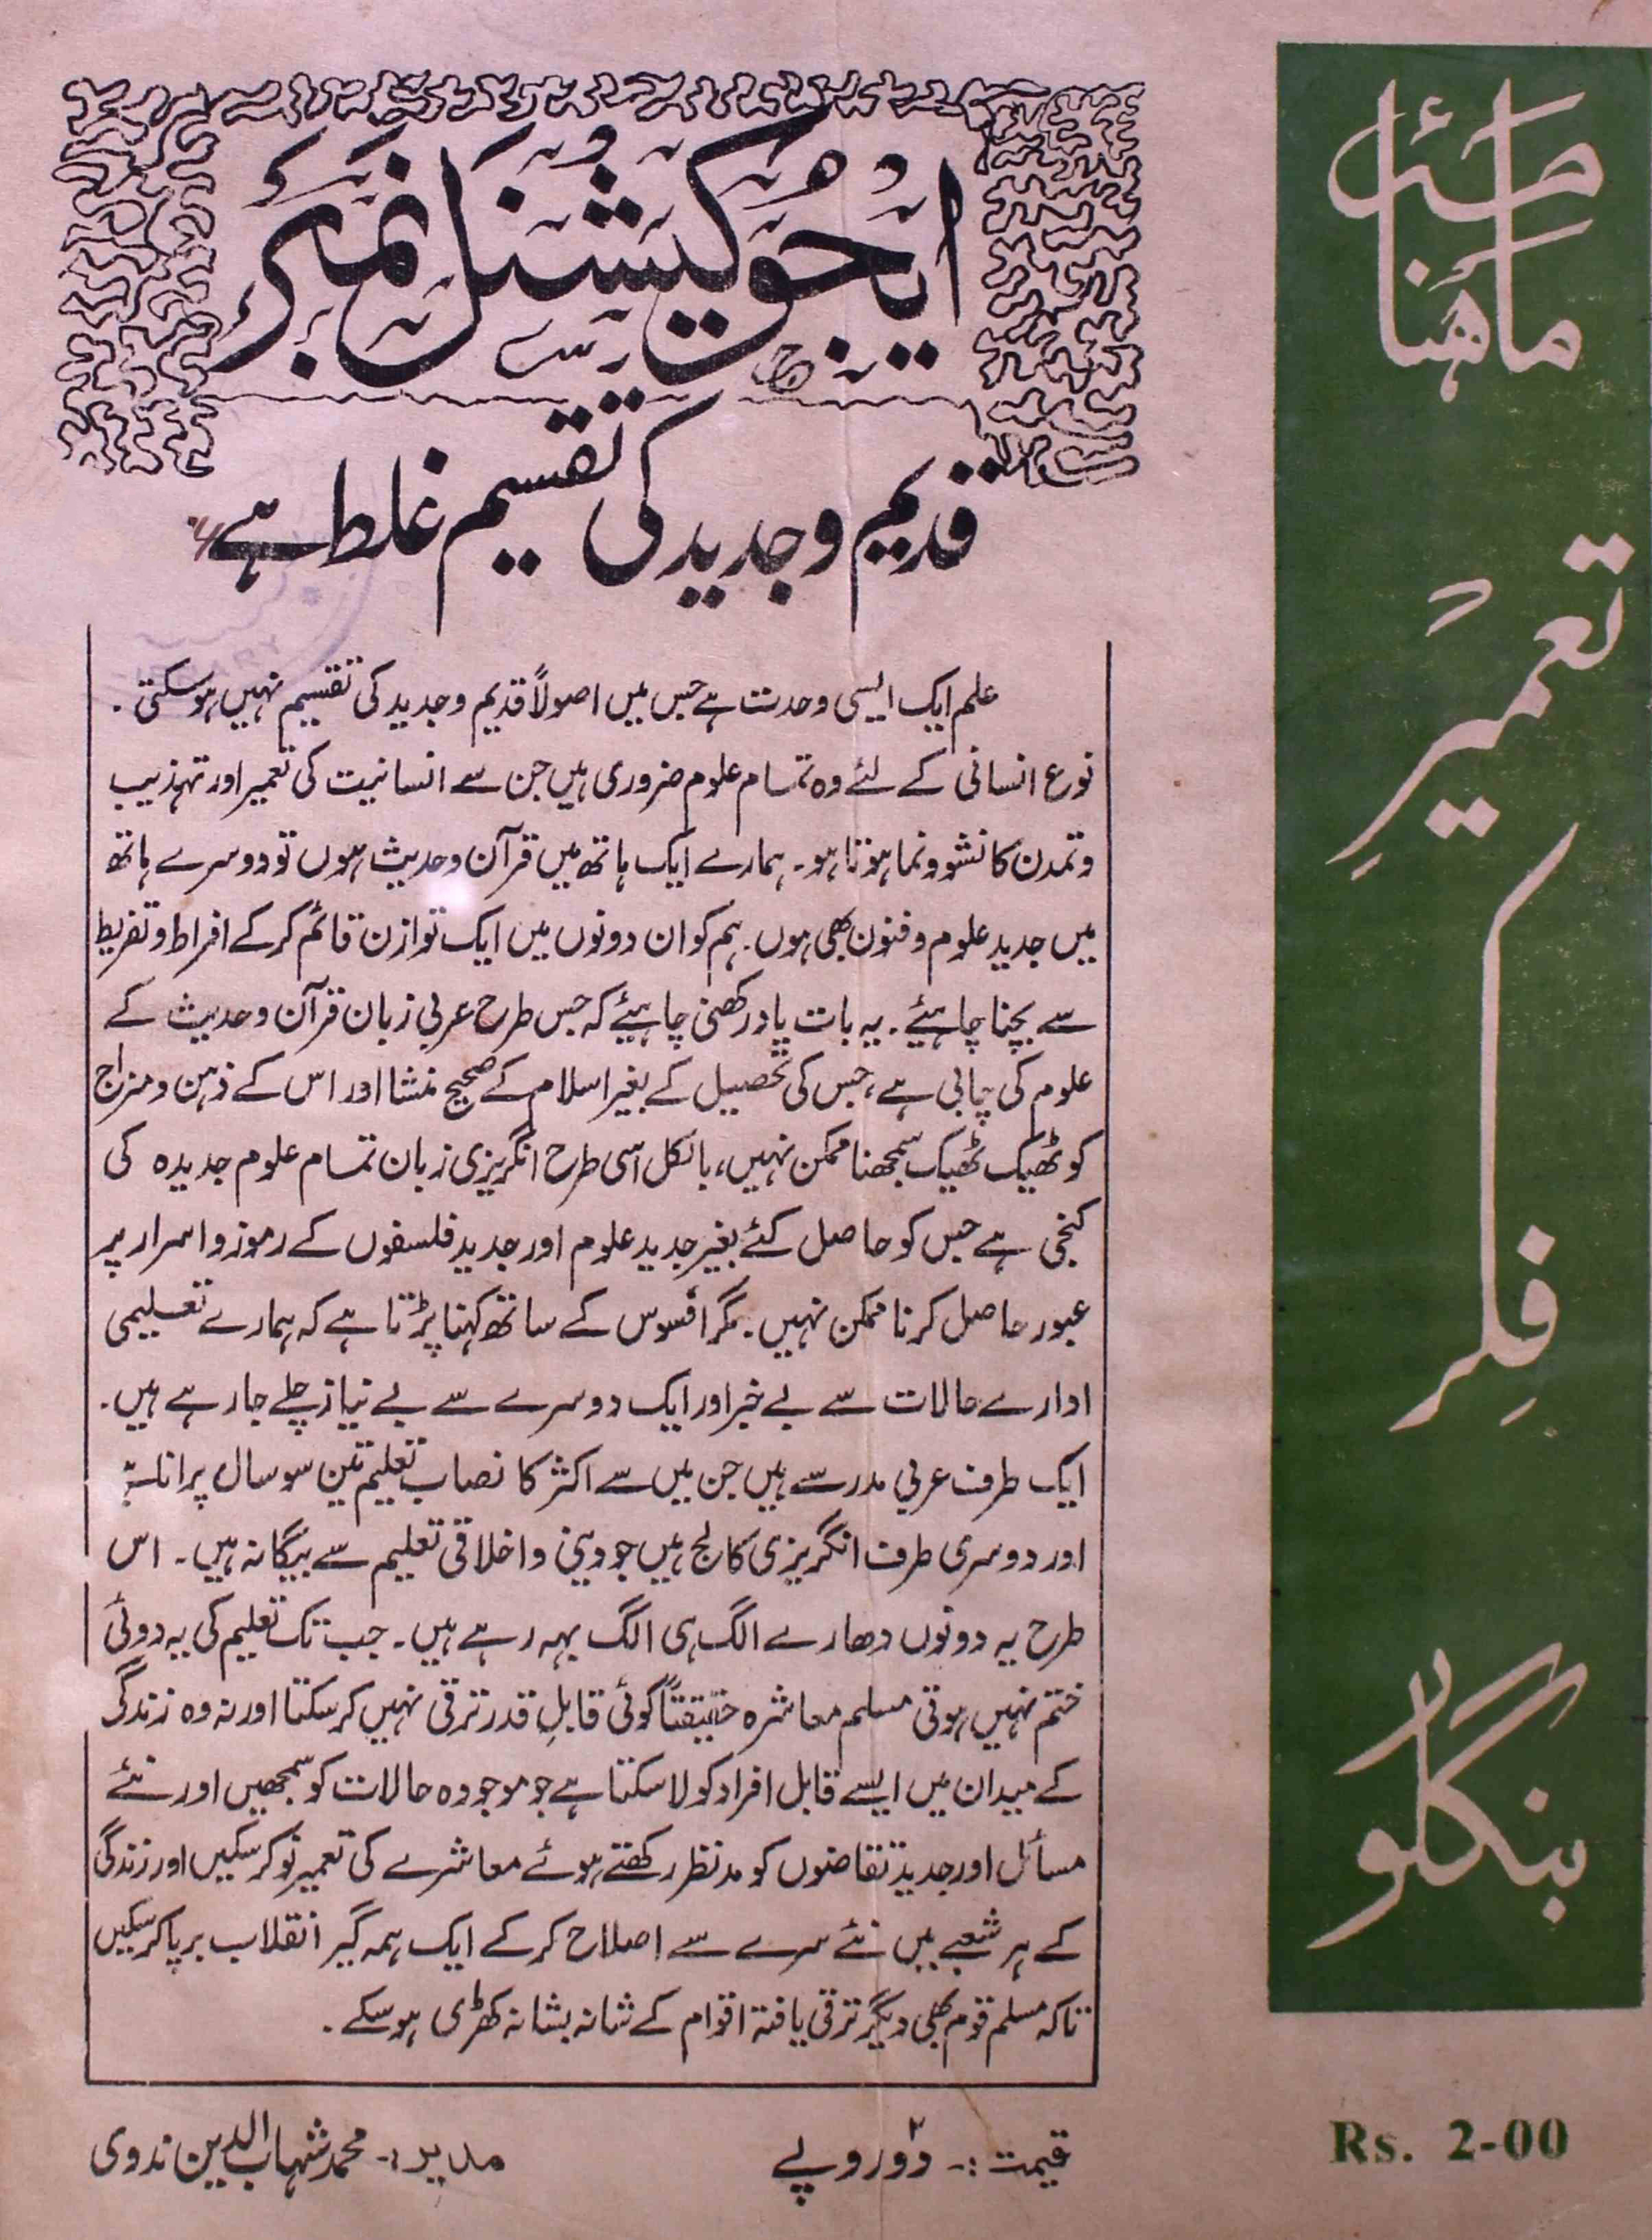 ماہنامہ
تعمیرِ
فکر
بنگلور
ایجوکیشنل نمبر
قدیم و جدید کی تقسیم غلط ہے
علم ایک ایسی وحدت ہے جس میں اصولاً قدیم و جدید کی تقسیم نہیں ہو سکتی۔
نوع انسانی کے لئے وہ تمام علوم ضروری ہیں جن سے انسانیت کی تعمیر اور تہذیب
و تمدن کا نشوونما ہوتا ہو۔ ہمارے ایک ہاتھ میں قرآن و حدیث ہوں تو دوسرے ہاتھ
میں جدید علوم و فنون بھی ہوں۔ ہم کو ان دونوں میں ایک توازن قائم کر کے افراط و تفریط
سے بچنا چاہیئے۔ یہ بات یاد رکھنی چاہیئے کہ جس طرح عربی زبان قرآن و حدیث کے
علوم کی چابی ہے، جس کی تحصیل کے بغیر اسلام کے صحیح منشا اور اس کے ذہن و مزاج
کو ٹھیک ٹھیک سمجھنا ممکن نہیں، بالکل اسی طرح انگریزی زبان تمام علوم جدیدہ کی
کنجی ہے جس کو حاصل کئے بغیر جدید علوم اور جدید فلسفوں کے رموز و اسرار پر
عبور حاصل کرنا ممکن نہیں۔ مگر افسوس کے ساتھ کہنا پڑتا ہے کہ ہمارے تعلیمی
ادارے حالات سے بے خبر اور ایک دوسرے سے بے نیاز چلے جا رہے ہیں۔
ایک طرف عربی مدرسے ہیں جن میں سے اکثر کا نصاب تعلیم تین سو سال پرانا ہے
اور دوسری طرف انگریزی کالج ہیں جو دینی و اخلاقی تعلیم سے بیگانہ ہیں۔ اس
طرح یہ دونوں دھارے الگ ہی الگ بہہ رہے ہیں۔ جب تک تعلیم کی یہ دوئی
ختم نہیں ہوتی مسلم معاشرہ حقیقتاً کوئی قابلِ قدر ترقی نہیں کر سکتا اور نہ وہ زندگی
کے میدان میں ایسے قابل افراد کو لا سکتا ہے جو موجودہ حالات کو سمجھیں اور نئے
مسائل اور جدید تقاضوں کو مدنظر رکھتے ہوئے معاشرے کی تعمیر نو کر سکیں اور زندگی
کے ہر شعبے میں نئے سرے سے اصلاح کر کے ایک ہمہ گیر انقلاب برپا کر سکیں
تاکہ مسلم قوم بھی دیگر ترقی یافتہ اقوام کے شانہ بشانہ کھڑی ہو سکے۔
قیمت :- دو ۲ روپے
مدیر :- محمد شہاب الدین ندوی
Rs. 2-00